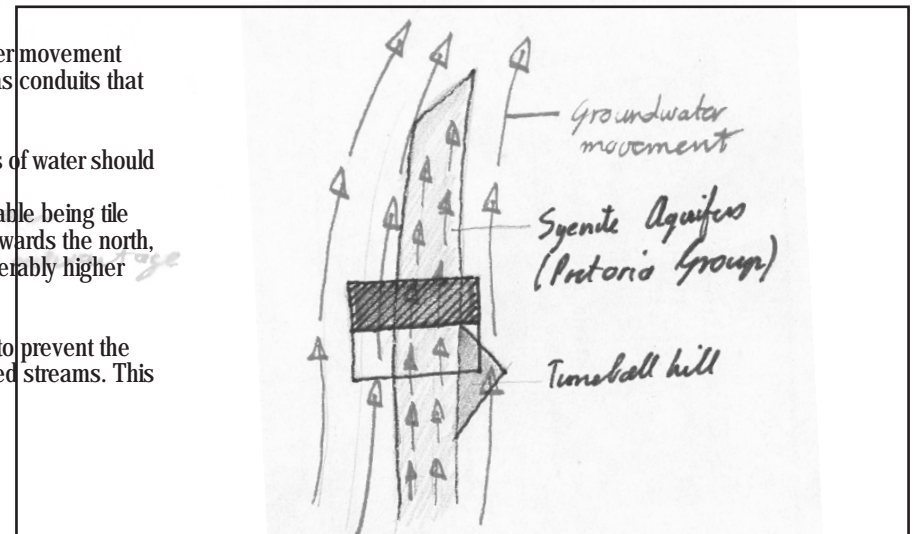 er movement
as conduits that
s of water should
able being tile
wards the north,
erably higher
to prevent the
ed streams. This
Groundwater
movement
Syenite Aquifers
(Pretoria Group)
Timeball hill